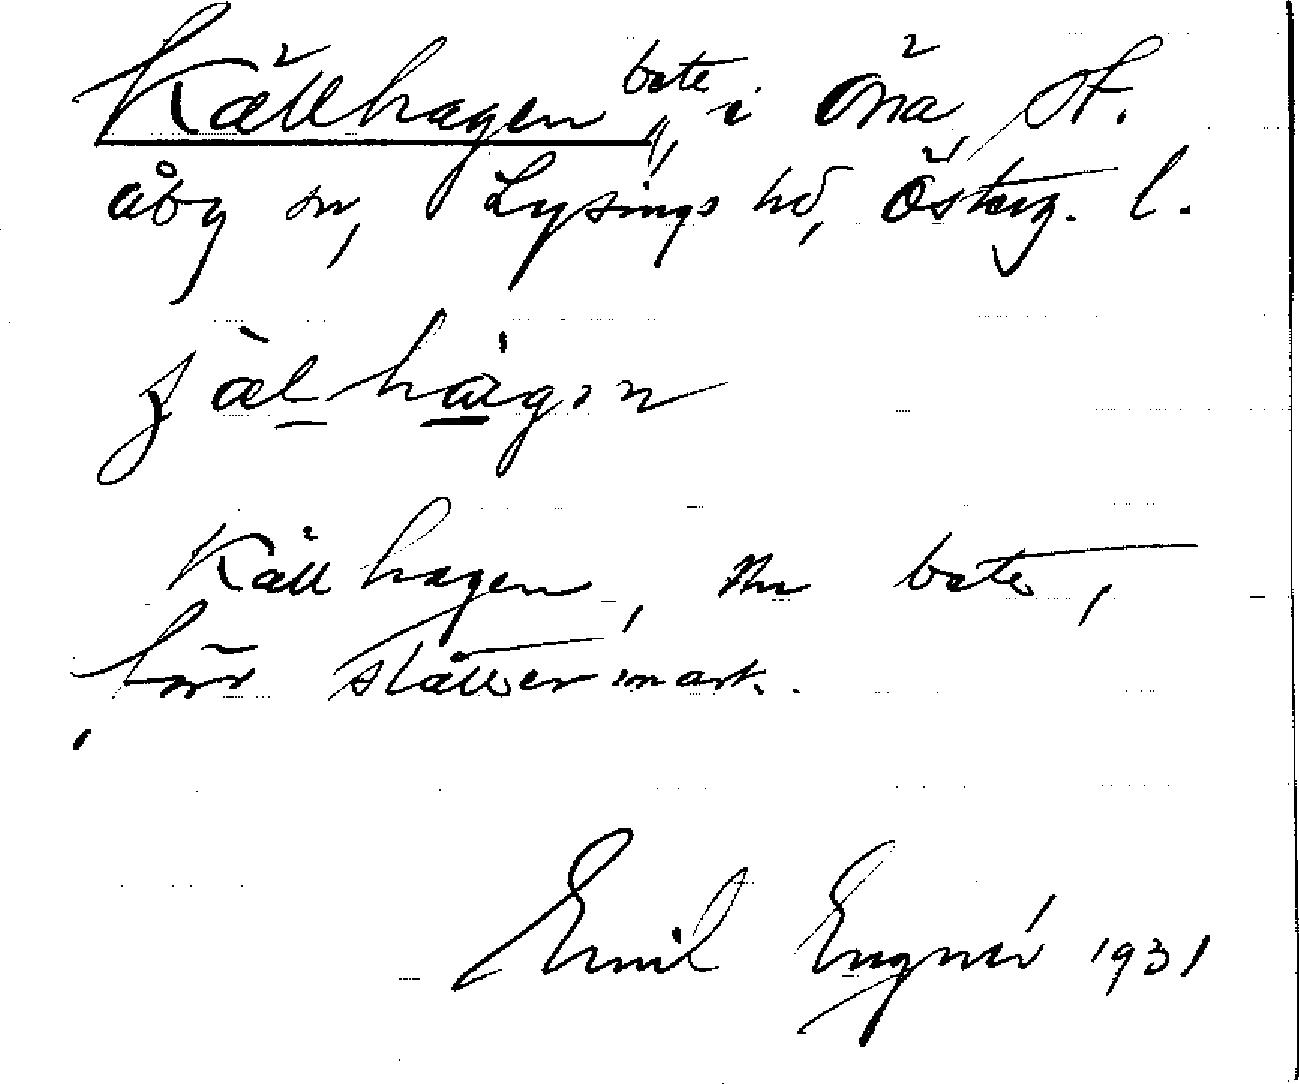 Källhagen, bete i Öna, St.
Åby sn, Lysings hd, Österg. l.
Källhagen, nu bete,
förr slåttermark.
Emil Engnér 1931